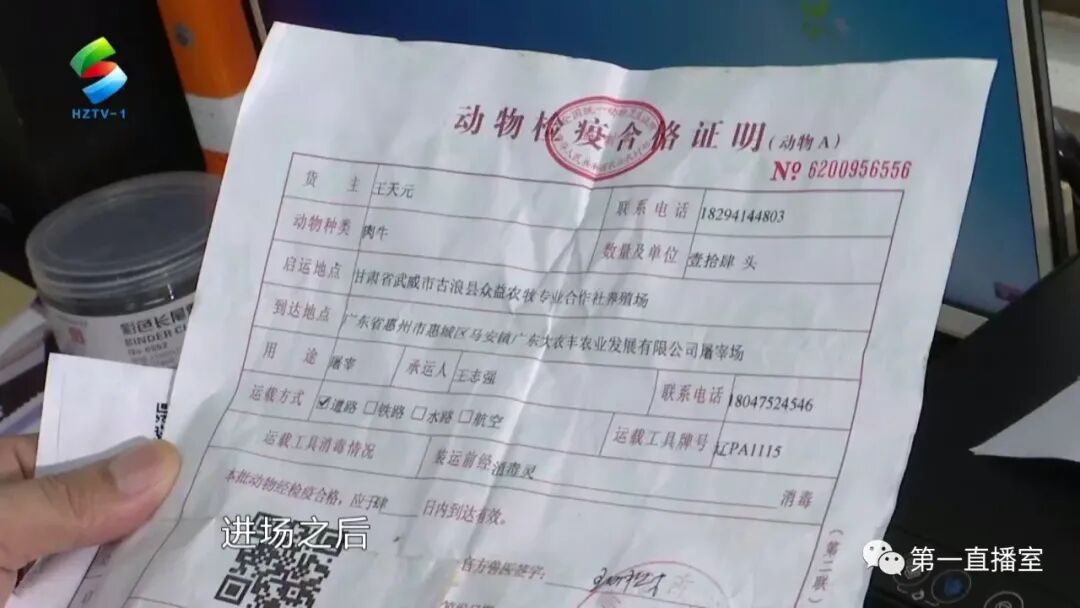 HZTV-1
动物检疫合格证明(动物A)
№ 6200956556
货主 王天元 联系电话 18294144803
动物种类 肉牛 数量及单位 壹拾肆 头
启运地点 甘肃省武威市古浪县众益农牧专业合作社养殖场
到达地点 广东省惠州市惠城区马安镇广东大农丰农业发展有限公司屠宰场
用途 屠宰 承运人 王志强 联系电话 18047524546
运载方式 ☑道路 ☐铁路 ☐水路 ☐航空 运载工具牌号 辽PA1115
运载工具消毒情况 装运前经消毒灵 消毒
本批动物经检疫合格，应于肆 日内到达有效。
官方兽医签字：
(第二联)
BINDER CL
进场之后
第一直播室